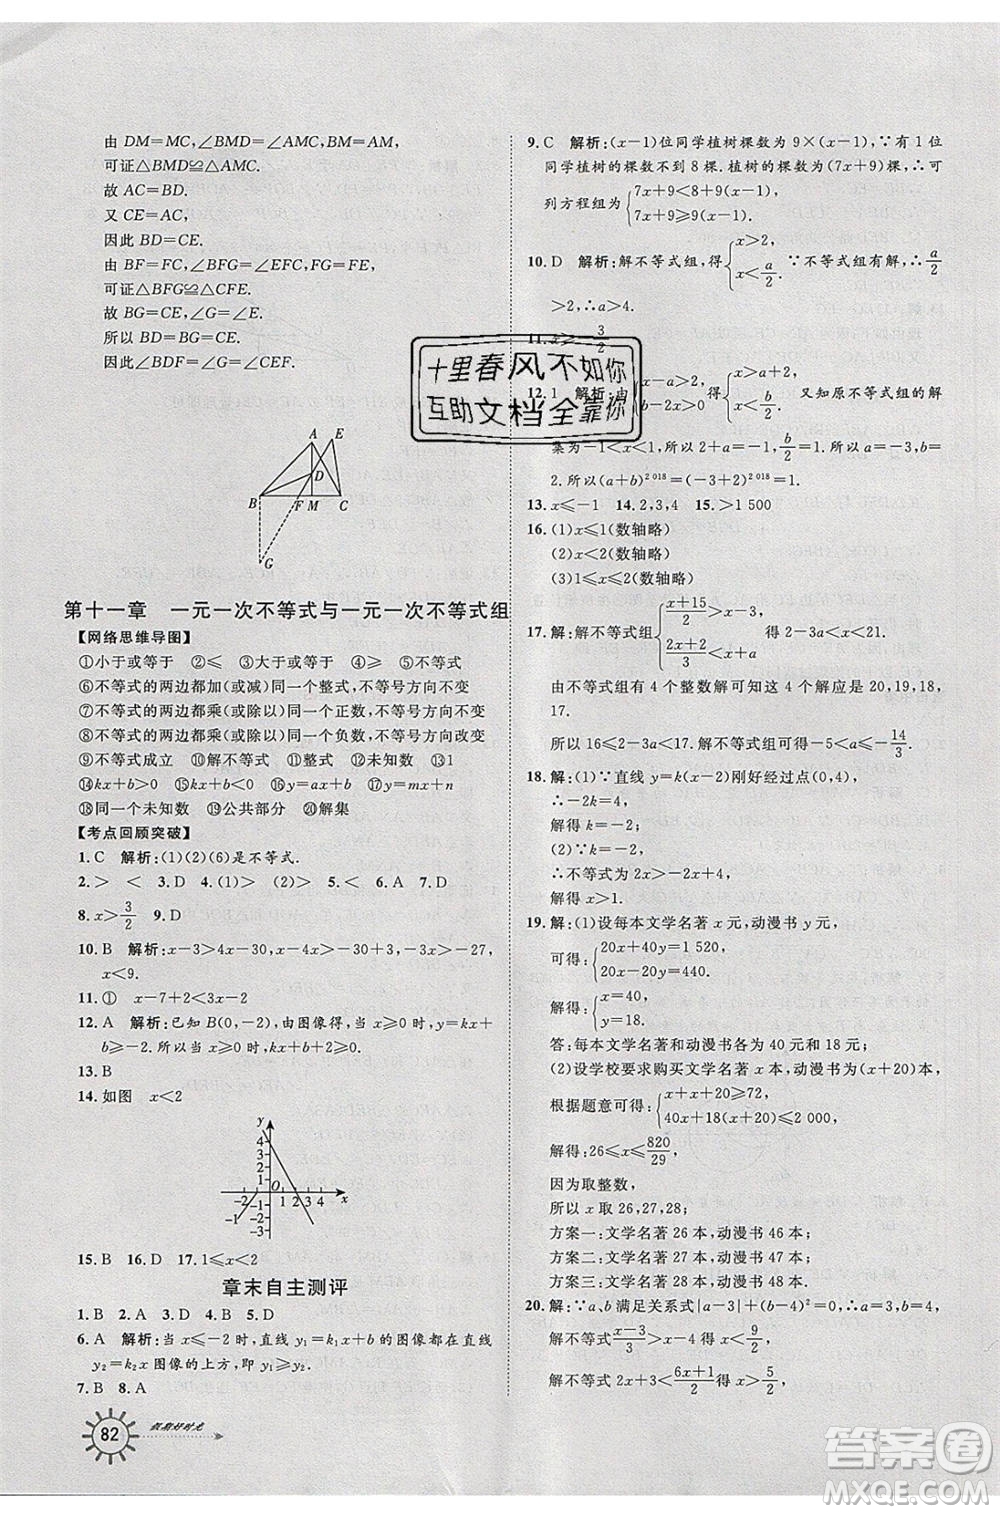 由 DM=MC,∠BMD=∠AMC,BM=AM,
可证△BMD≌△AMC.
故 AC=BD.
又 CE=AC,
因此 BD=CE.
由 BF=FC,∠BFG=∠EFC,FG=FE,
可证△BFG≌△CFE.
故 BG=CE,∠G=∠E.
所以 BD=BG.
故∠BDF=∠G=∠CEF.
A
E
D
B
F
M
C
G
第十一章 一元一次不等式与一元一次不等式组
【网络思维导图】
①小于或等于 ②≤ ③大于或等于 ④≥ ⑤不等式
⑥不等式的两边都加(或减)同一个整式,不等号方向不变
⑦不等式的两边都乘(或除以)同一个正数,不等号方向不变
⑧不等式的两边都乘(或除以)同一个负数,不等号方向改变
⑨不等式成立 ⑩解不等式 ⑪整式 ⑫一 ⑬1
⑭kx+b>0 ⑮kx+b<0 ⑯y=ax+b ⑰y=mx+n
⑱同一个未知数 ⑲公共部分 ⑳解集
【考点回顾突破】
1.C 解析:(1)(2)(6)是不等式.
2.> < 3.D 4.(1)> (2)> 5.< 6.A 7.D
8.x>3/2 9.D
10.B 解析:x-3>4x-30,x-4x>-30+3,-3x>-27,
x<9.
11.① x-7+2<3x-2
12.A 解析:已知 B(0,-2),由图像得,当 x≥0时,y=kx+
b≥-2.所以当 x<0时,kx+b<-2.
13.B
14.如图 x<2
y
4
3
2
1
-2-1
O
1 2 3 4
x
-1
-2
-3
15.B 16.D 17.1≤x<2
章末自主测评
1.B 2.A 3.D 4.B 5.D
6.A 解析:当 x≤-2时,直线 y₁=k₁x+b的图像都在直线
y₂=k₂x 图像的上方,即 y₁≥y₂.
7.B 8.A
82
假期好时光
9.C 解析:(x-1)位同学植树棵数为 9×(x-1),∵有 1 位
同学植树的棵数不到 8棵.植树的棵数为(7x+9)棵,∴可
列方程组为{7x+9<8+9(x-1),
7x+9≥9(x-1).
10.D 解析:解不等式组,得{x>2, x<a/2. ∵不等式组有解,∴a/2
>2,∴a>4.
11.x≥3/2
12.1 解析:由 得{x>a+2, x<b/2. 又知原不等式组的解
集为-1<x<1,所以 2+a=-1,b/2=1.所以 a=-3,b=
2.所以(a+b)²⁰¹⁸=(-3+2)²⁰¹⁸=1.
13.x≤-1 14.2,3,4 15.>1 500
16.(1)x≤1(数轴略)
(2)x<2(数轴略)
(3)1≤x≤6(数轴略)
17.解:解不等式组{(x+15)/2>x-3, (2x+2)/3<x+a 得 2-3a<x<21.
由不等式组有 4 个整数解可知这 4个解应是 20,19,18,
17.
所以 16≤2-3a<17.解不等式组可得-5<a≤-14/3.
18.解:(1)∵直线 y=k(x-2)刚好经过点(0,4),
∴-2k=4,
解得 k=-2;
(2)∵k=-2,
∴不等式为-2x-2>-2x+4,
解得 x<1.
19.解:(1)设每本文学名著 x元,动漫书 y元,
可得:{20x+40y=1 520,
20x-20y=440.
解得:{x=40,
y=18.
答:每本文学名著和动漫书各为 40元和 18元;
(2)设学校要求购买文学名著 x本,动漫书为(x+20)本,
根据题意可得:{x+x+20≥72,
40x+18(x+20)≤2 000,
解得:26≤x≤820/29,
因为取整数,
所以 x取 26,27,28;
方案一:文学名著 26 本,动漫书 46 本;
方案二:文学名著 27 本,动漫书 47 本;
方案三:文学名著 28 本,动漫书 48 本.
20.解:∵a,b满足关系式|a-3|+(b-2)²=0,∴a=3,b=2,
解不等式(x-3)/3>x-4得,x<9/2,
解不等式(6x+1)/2<4x-2 得,x>5/2,
十里春风不如你
互助文档全靠你
答案卷
MXQE.COM